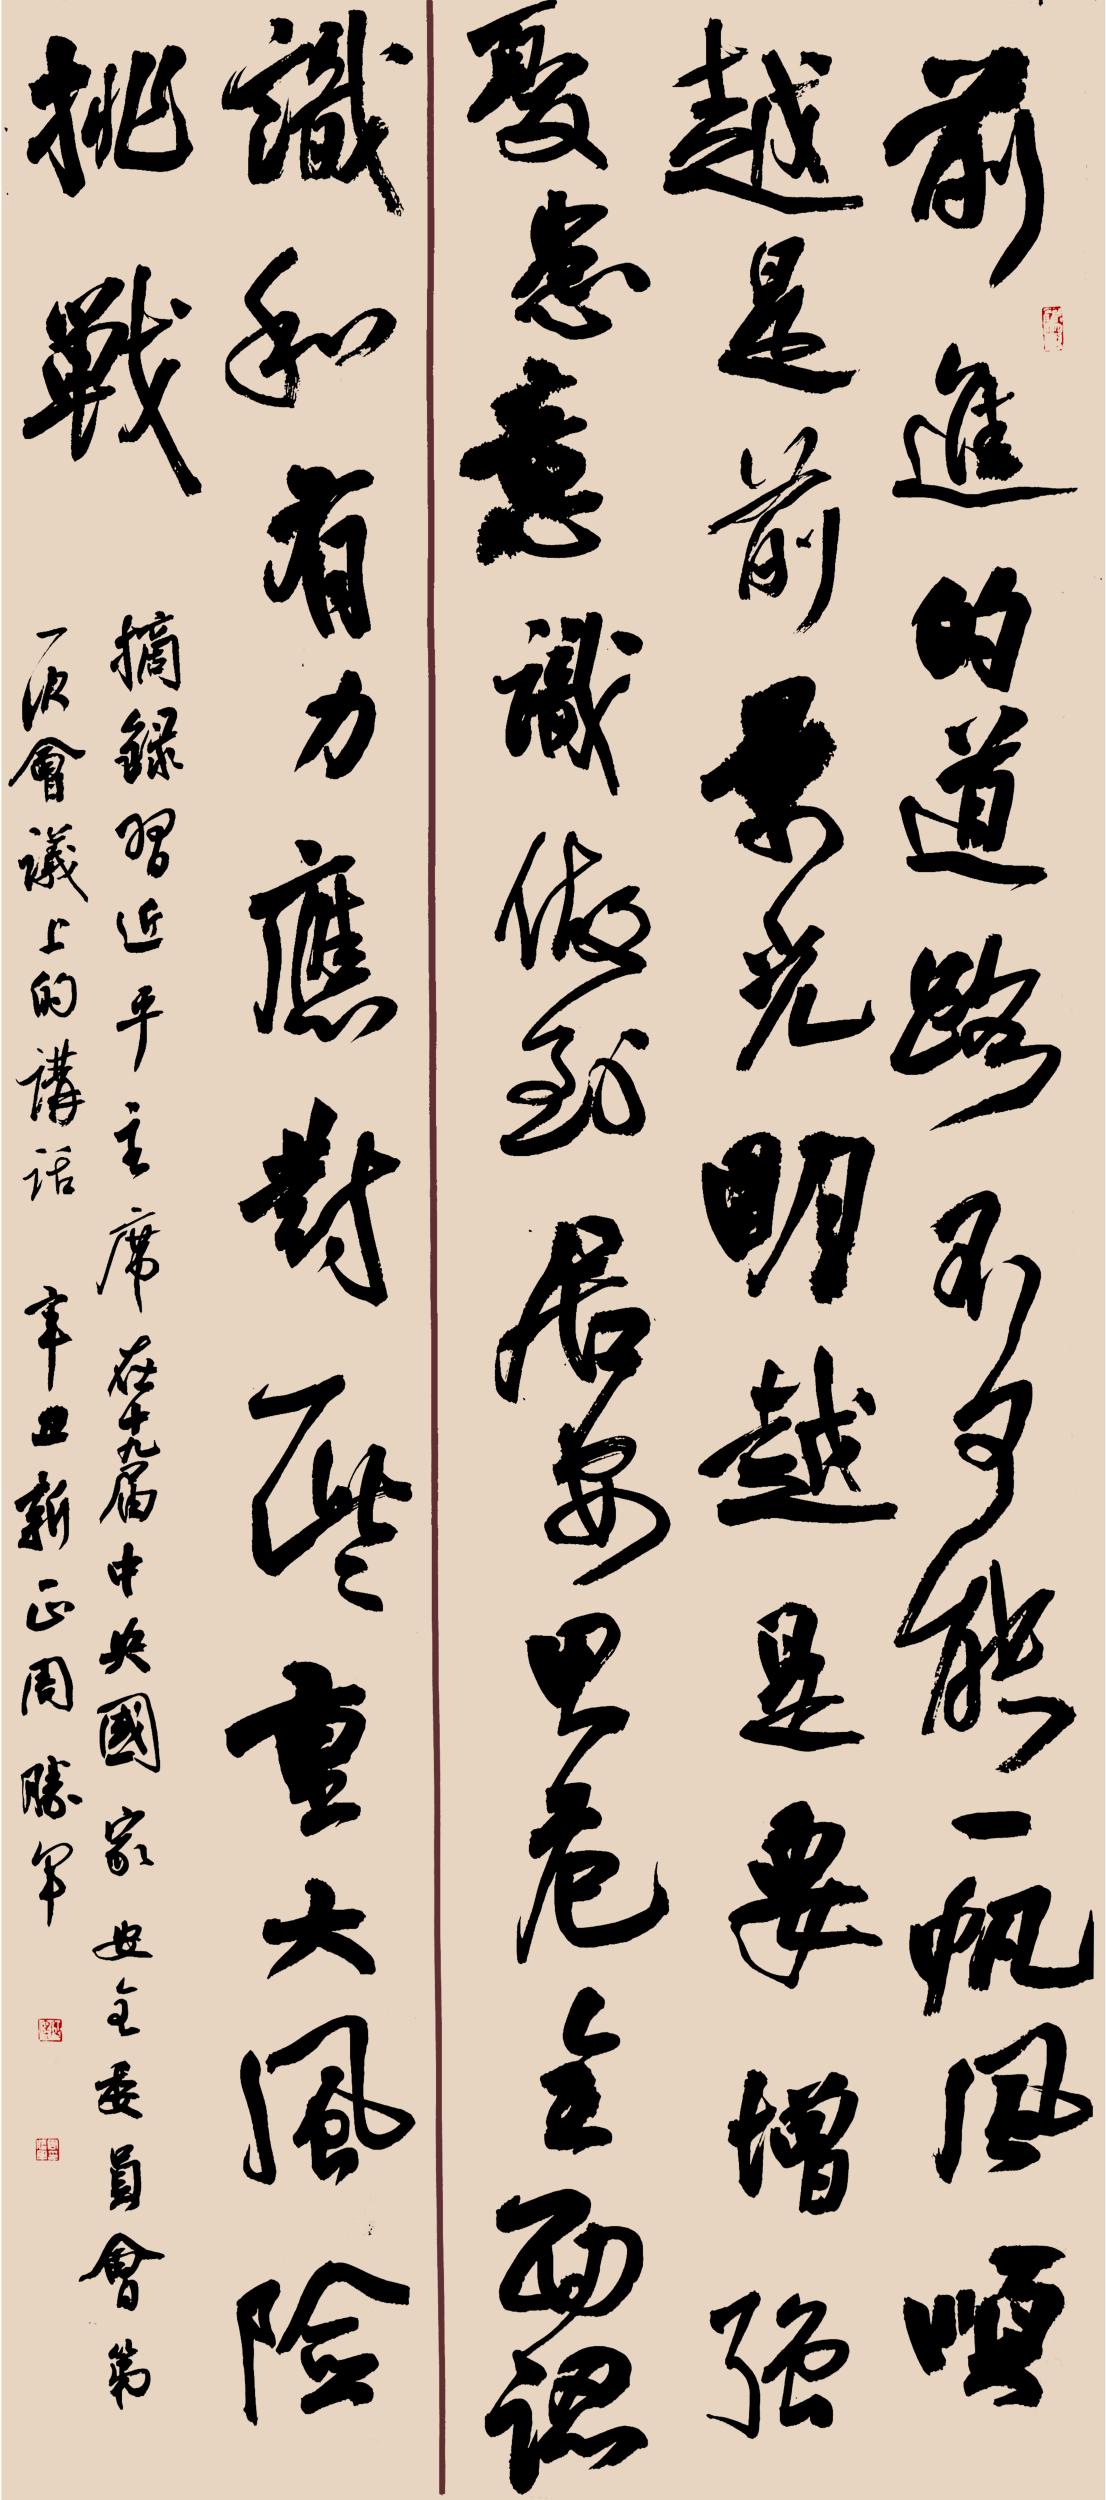 前進的道路不可能一帆風順
越是前景光明越是要增強
憂患意識做到居安思危全面認
識和有力應對一些重大風險
挑戰
摘錄習近平主席在十九屆中央國家安全委員會第
一次會議上的講話 辛丑新正周勝軍